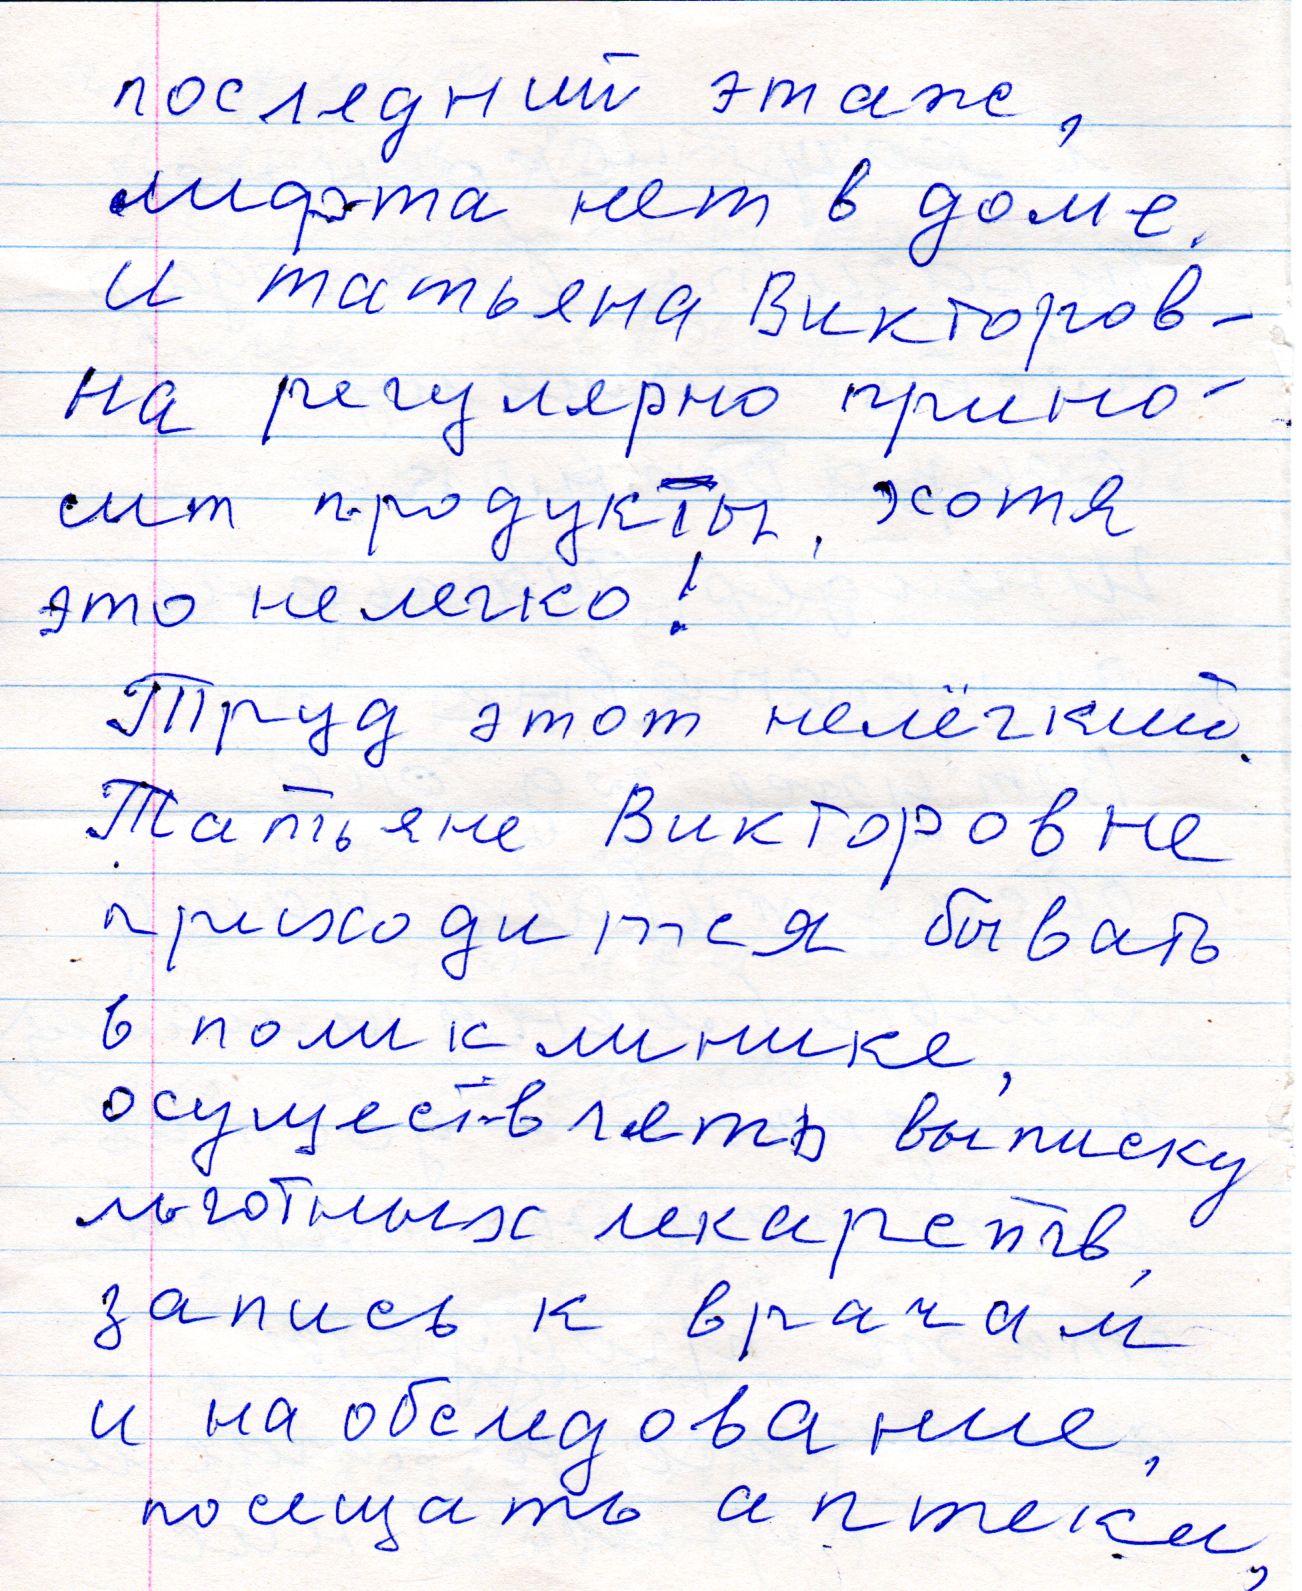 последний этаж,
лифта нет в доме.
И татьяна Виктров-
на регулярно прино-
сит продукты, хотя
это нелегко!
Труд этот нелёгкий.
Татьяне Викторовне
приходится бывать
в поликлинике,
осуществлять выписку
льготных лекарств,
запись к врачам
и на обследование,
посещать аптеки,